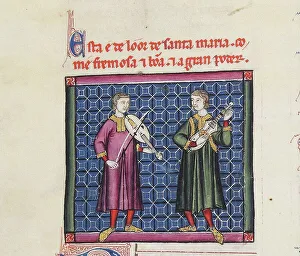 Esta e de loor de santa maria. co
me e fremosa e bõa. e a gran poder.